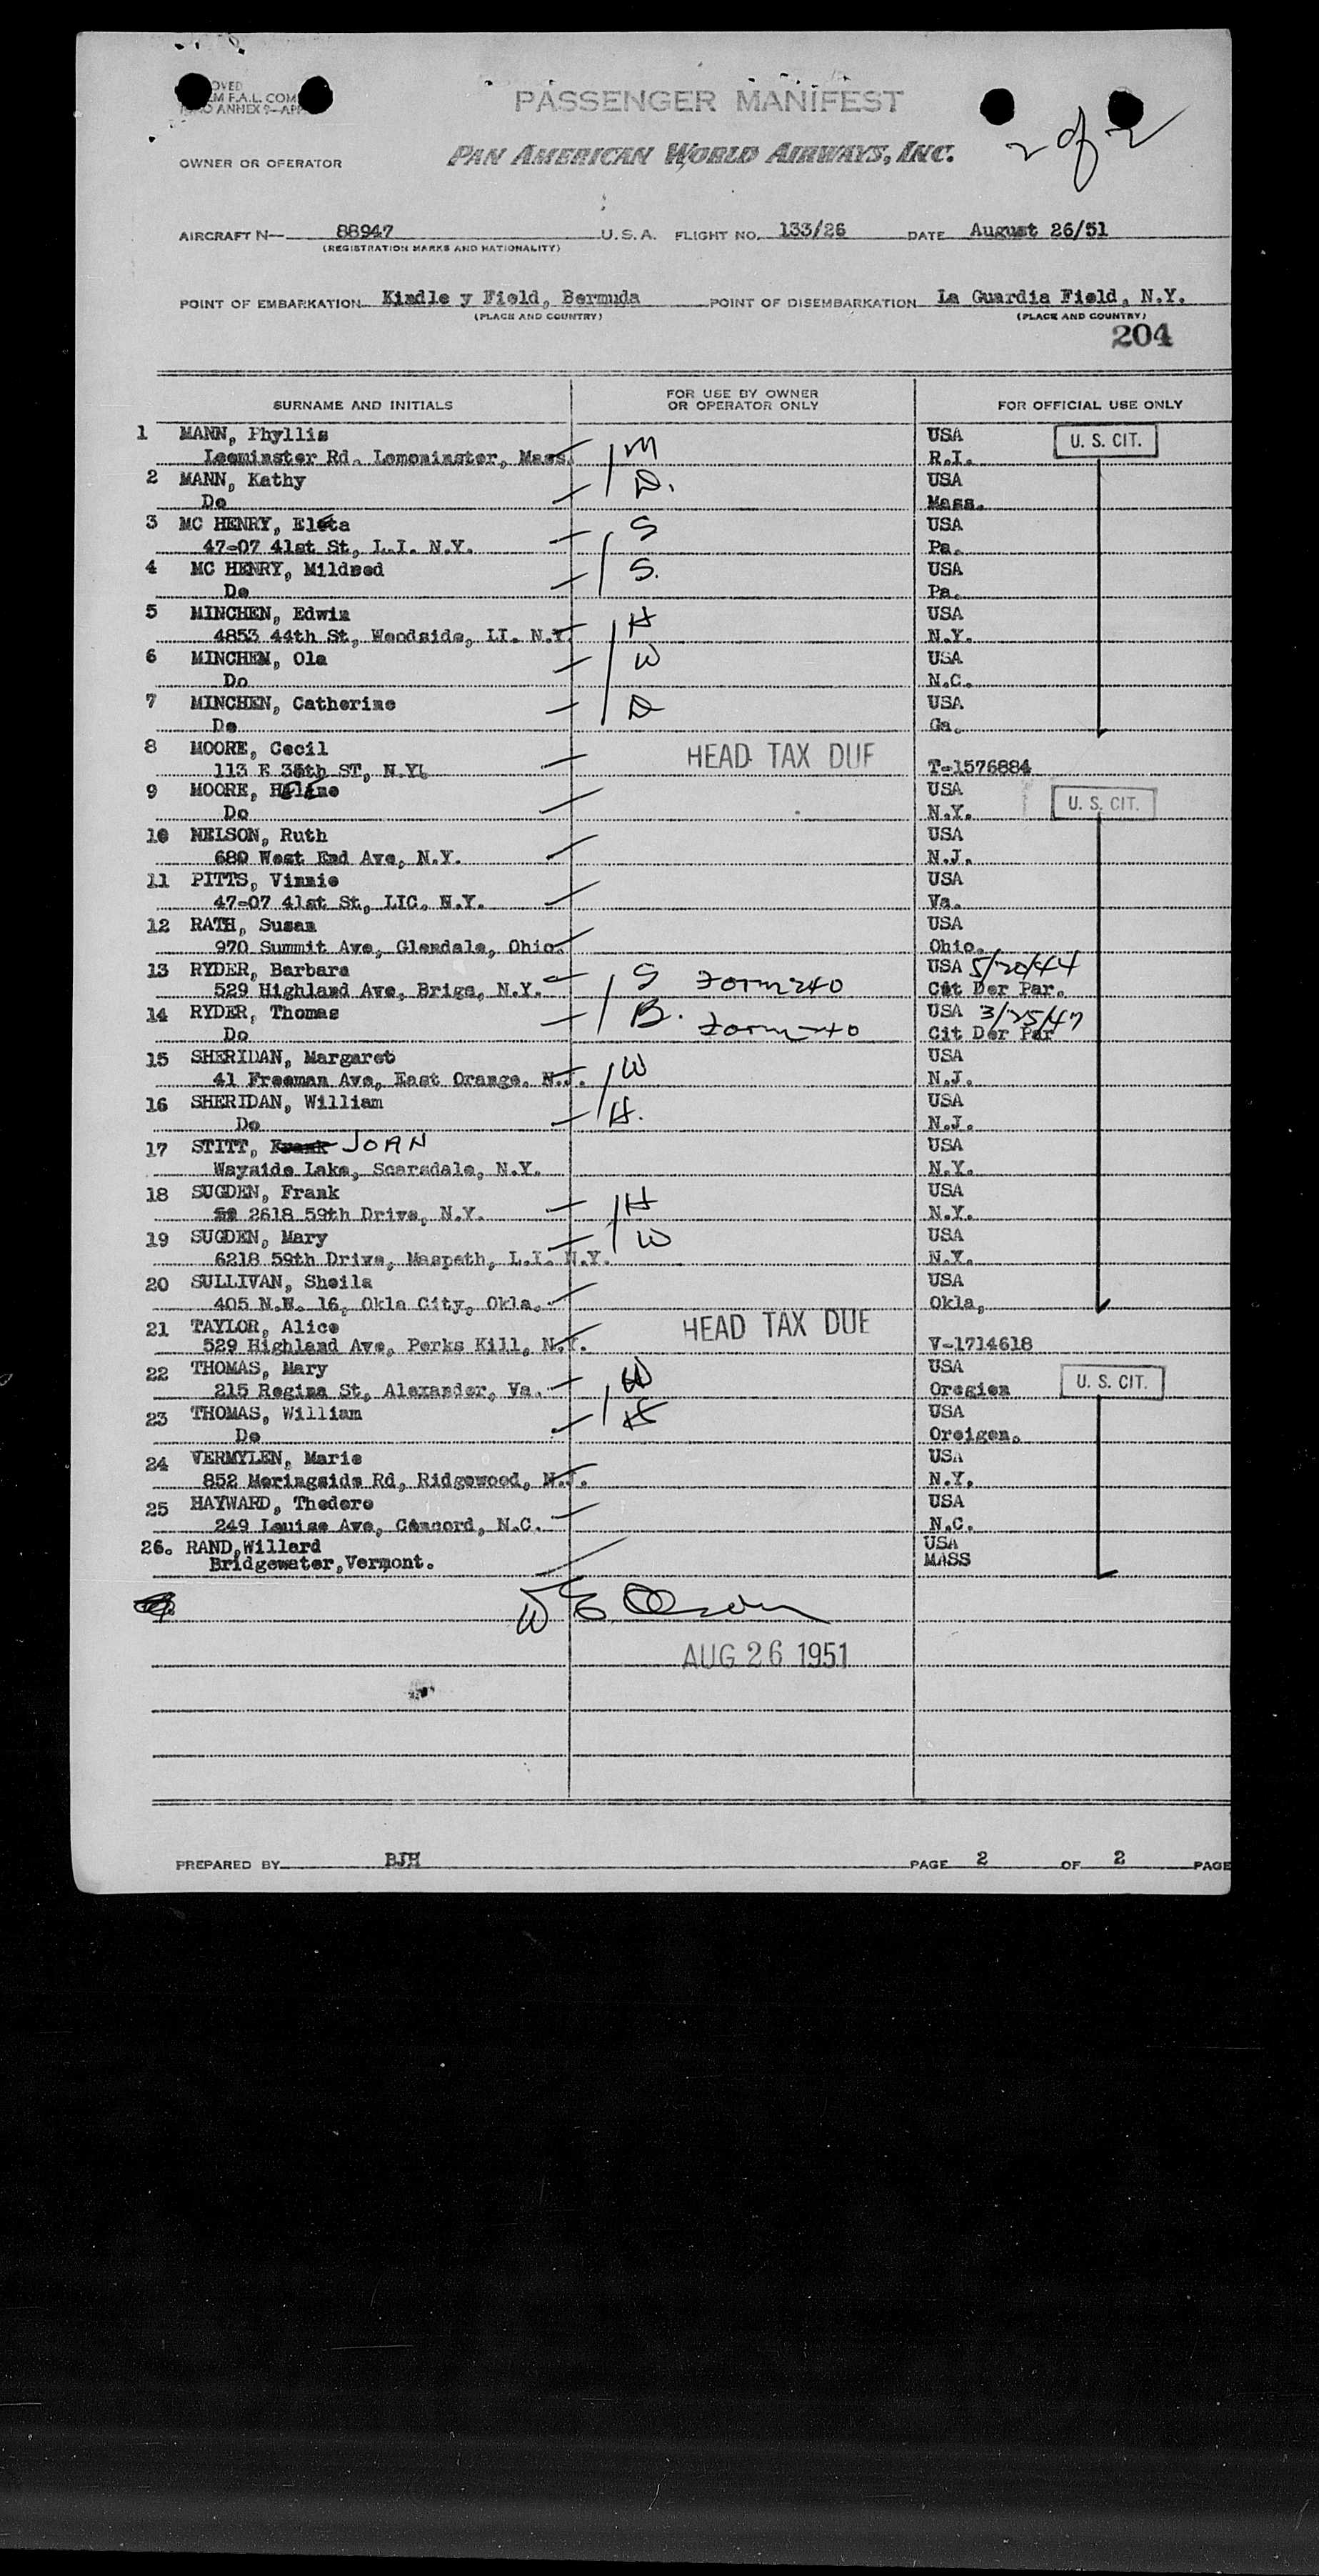 PASSENGER MANIFEST
2 of 2
OWNER OR OPERATOR PAN AMERICAN WORLD AIRWAYS, INC.
AIRCRAFT N— 88947 U.S.A. FLIGHT NO. 133/26 DATE August 26/51
(REGISTRATION MARKS AND NATIONALITY)
POINT OF EMBARKATION Kindle y Field, Bermuda POINT OF DISEMBARKATION La Guardia Field, N.Y.
(PLACE AND COUNTRY) (PLACE AND COUNTRY)
204
SURNAME AND INITIALS FOR USE BY OWNER OR OPERATOR ONLY FOR OFFICIAL USE ONLY
1 MANN, Phyllis USA U. S. CIT.
Leominster Rd. Lemominster, Mass. M R.I.
2 MANN, Kathy USA
Do D. Mass.
3 MC HENRY, Eleta S USA
47-07 41st St, L.I. N.Y. Pa.
4 MC HENRY, Mildred S. USA
Do Pa.
5 MINCHEN, Edwin H USA
4853 44th St, Woodside, LI. N.Y. N.Y.
6 MINCHEN, Ola W USA
Do N.C.
7 MINCHEN, Catherine D USA
Do Ga.
8 MOORE, Cecil HEAD TAX DUE
113 E 35th ST, N.Y. T-1576884
9 MOORE, USA U. S. CIT.
Do N.Y.
10 NELSON, Ruth USA
680 West End Ave, N.Y. N.J.
11 PITTS, Vinnie USA
47-07 41st St, LIC. N.Y. Va.
12 RATH, Susan USA
970 Summit Ave, Glendale, Ohio. Ohio.
13 RYDER, Barbara S Form 240 USA 5/20/44
529 Highland Ave, Brigs, N.Y. Cit Der Par.
14 RYDER, Thomas B. Form 240 USA 3/25/47
Do Cit Der Par
15 SHERIDAN, Margaret W USA
41 Freeman Ave, East Orange. N.J. N.J.
16 SHERIDAN, William H. USA
Do N.J.
17 STITT, Frank JOAN USA
Wayside Lake, Scarsdale, N.Y. N.Y.
18 SUGDEN, Frank H USA
2618 59th Drive, N.Y. N.Y.
19 SUGDEN, Mary W USA
6218 59th Drive, Maspeth, L.I. N.Y. N.Y.
20 SULLIVAN, Sheila USA
405 N.W. 16, Okla City, Okla. Okla,
21 TAYLOR, Alice HEAD TAX DUE
529 Highland Ave, Perks Kill, N.Y. V-1714618
22 THOMAS, Mary W USA U. S. CIT.
215 Regina St, Alexander, Va. Oregion
23 THOMAS, William H USA
Do Oreigon.
24 VERMYLEN, Marie USA
852 Moringside Rd, Ridgewood, N.J. N.Y.
25 HAYWARD, Thedore USA
249 Louise Ave, Concord, N.C. N.C.
26. RAND, Willard USA
Bridgewater, Vermont. MASS
W E Olson
AUG 26 1951
PREPARED BY BJH PAGE 2 OF 2 PAGE